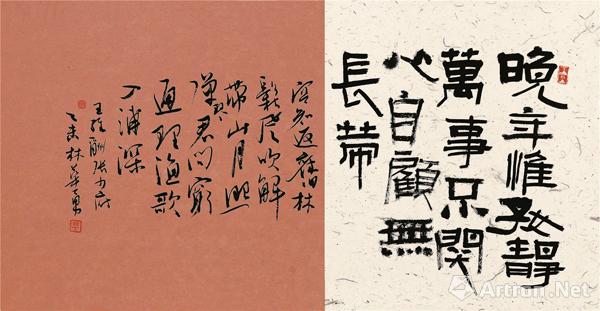 晚年惟好靜
萬事不関
心自顧無
長策
空知返舊林
鬆風吹解
帶山月照
彈琴君問窮
通理漁歌
入浦深
王維酬張少府
乙未林勇
Artron.Net